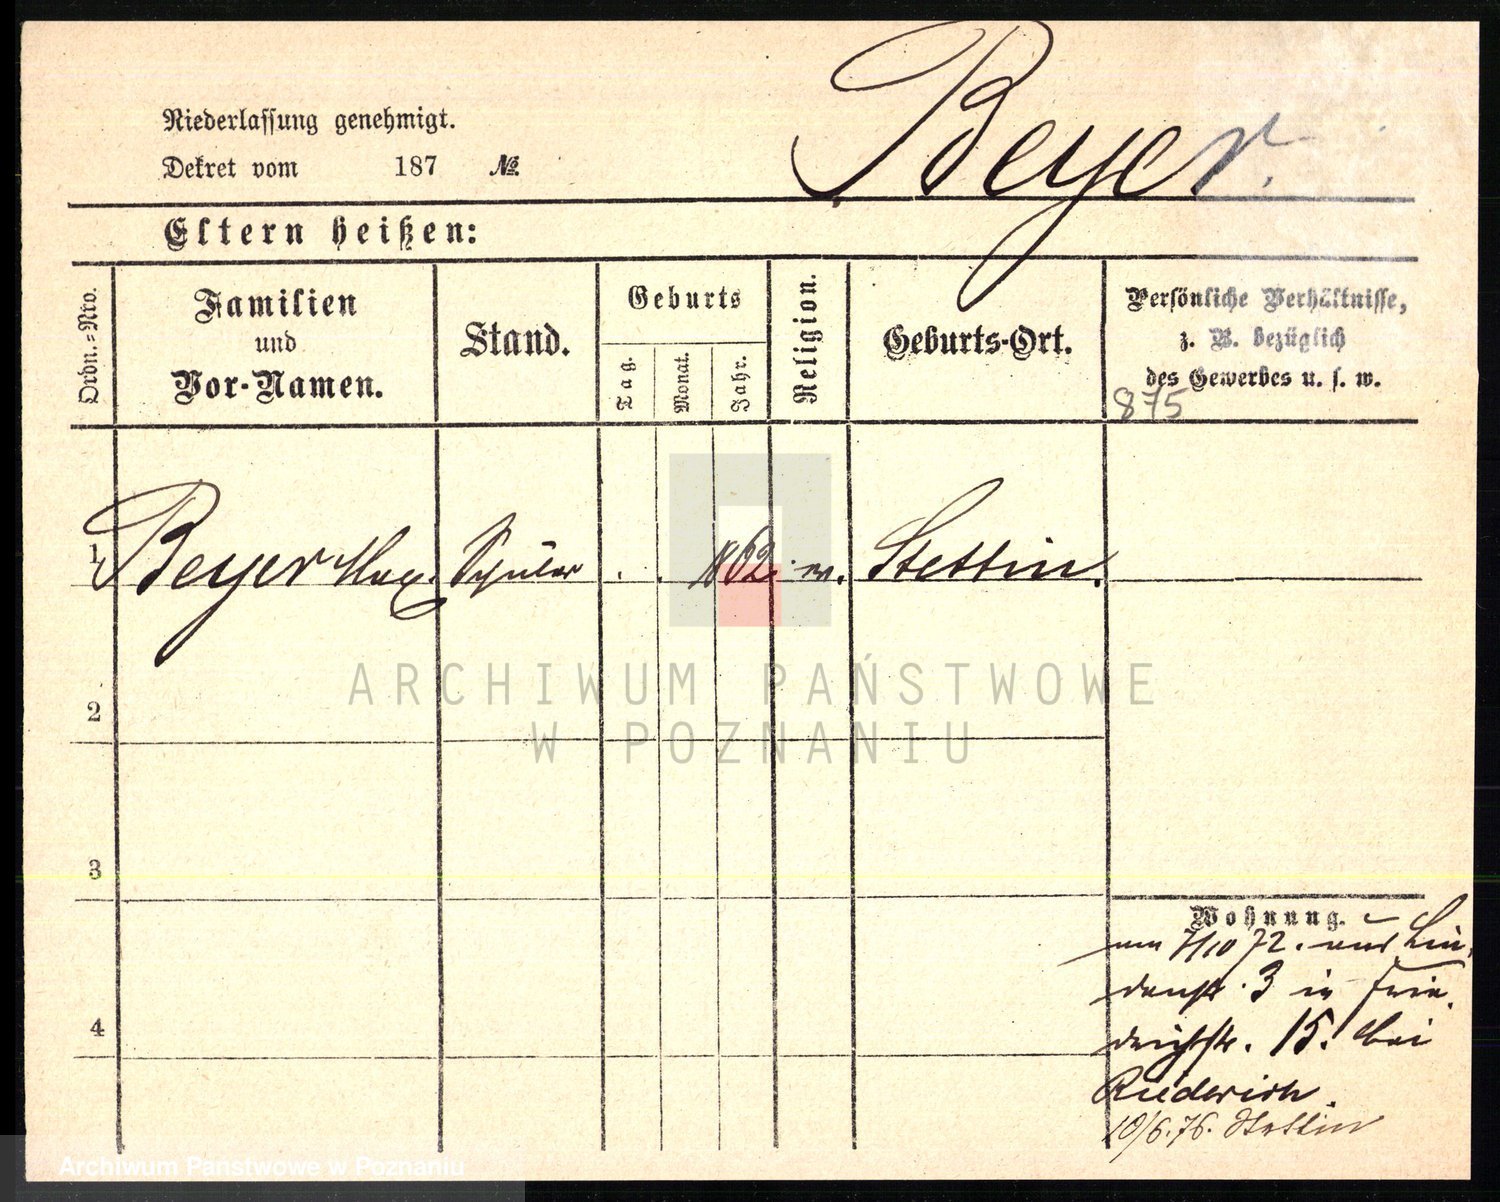 Beyer.
Niederlassung genehmigt.
Dekret vom 187 №
Eltern heißen:
Ordn.-Nro.
Familien
und
Vor-Namen.
Stand.
Geburts
Tag.
Monat.
Jahr.
Religion.
Geburts-Ort.
Persönliche Verhältnisse,
z. B. bezüglich
des Gewerbes u. s. w.
875
1 Beyer Max. Schüler . . 1862. ev. Stettin.
2
3
4
Wohnung.
am 7/10 72. aus Lin-
denstr. 3 in Frie-
drichstr. 15. bei
10/6.76. Stettin
ARCHIWUM PAŃSTWOWE
W POZNANIU
Archiwum Państwowe w Poznaniu